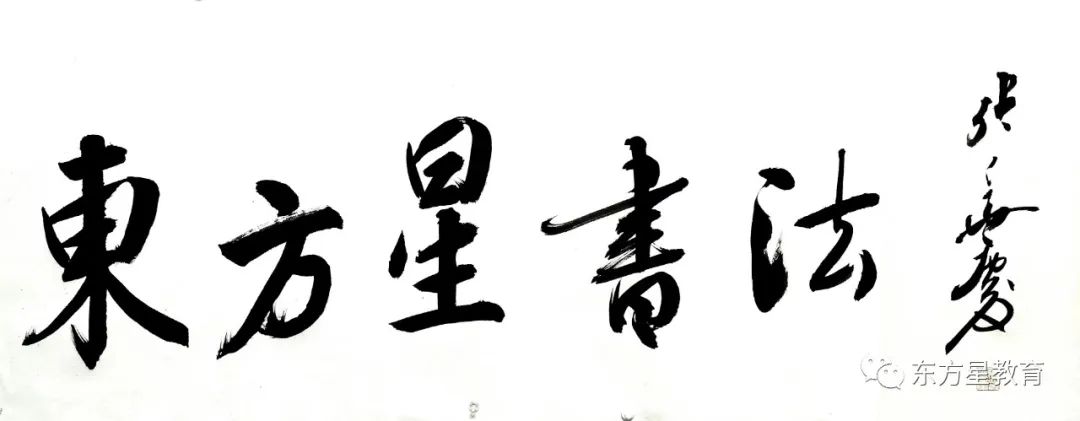 東方星書法
张慶
东方星教育